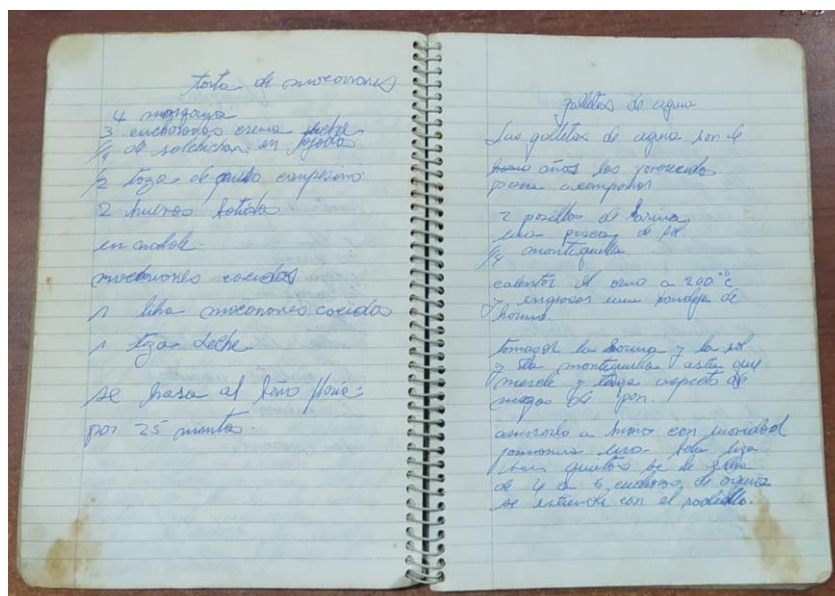 torta de macarrones
4 margarija
3 cucharadas crema leche
1/4 de salchichas en
1/2 taza de queso campesino
2 huevos batidos
en molde.
macarrones cocidos
1 libra macarrones cocidos
1 taza leche
se hasa al baño
por 25 minutos.
galletas de agua
Las galletas de agua son de
años las
para acompañar
2 posillos de harina
una pisca de sal
1/4 mantequilla
calentar el orno a 200°c
y engrasar una bandeja de
horno.
la harina y la sal
y la mantequilla asta que
mescle y tenga aspecto de
migas de pan.
amasarlo a mano con suavidad
una bola liza
se le
de 4 a 6 de
se estiende con el rodillo.